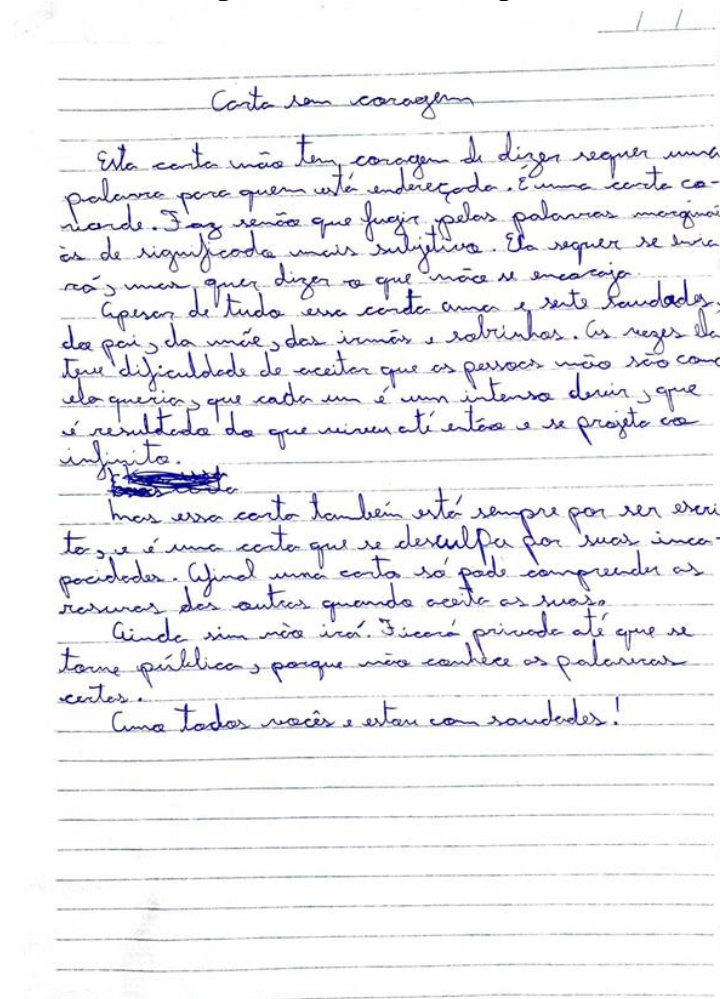 / /
Carta sem coragem
Esta carta não tem coragem de dizer sequer uma
palavra para quem está endereçada. É uma carta co-
varde. Faz senão que fugir pelas palavras margina
às de significado mais subjetivo. Ela sequer se envia
rá, mas quer dizer o que não se encoraja.
Apesar de tudo essa carta ama e sente saudades,
do pai, da mãe, das irmãs e sobrinhos. As vezes ela
teve dificuldade de aceitar que as pessoas não são como
ela queria, que cada um é um intenso devir, que
é resultado do que viveu até então e se projeta ao
infinito.
Mas essa carta também está sempre por ser escri
ta, e é uma carta que se desculpa por suas inca-
pacidades. Afinal uma carta só pode compreender as
rasuras das outras quando aceita as suas.
Ainda sim não irá. Ficará privada até que se
torne pública, porque não conhece as palavras
certas.
Amo todos vocês e estou com saudades!